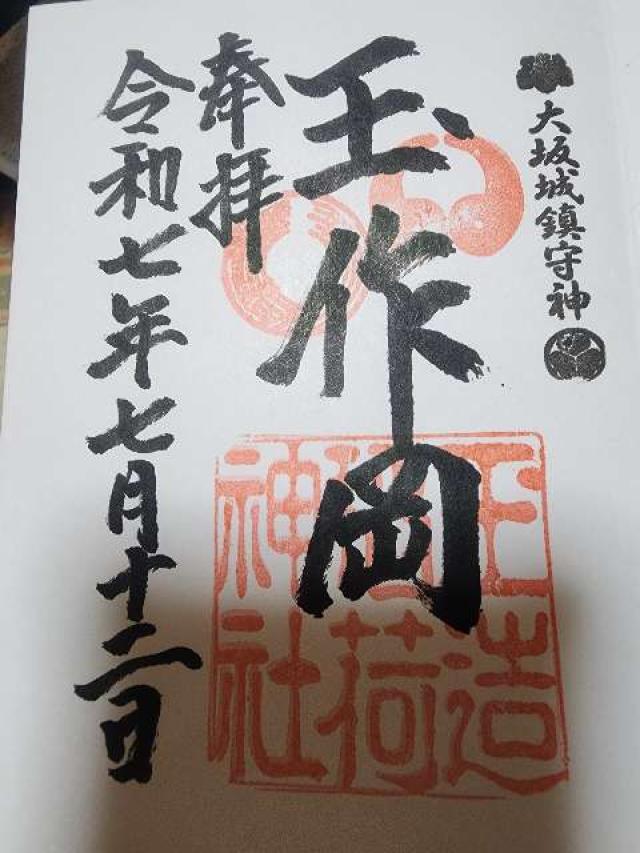 大坂城鎮守神
玉作岡
奉拝
令和七年七月十二日
玉造稲荷神社